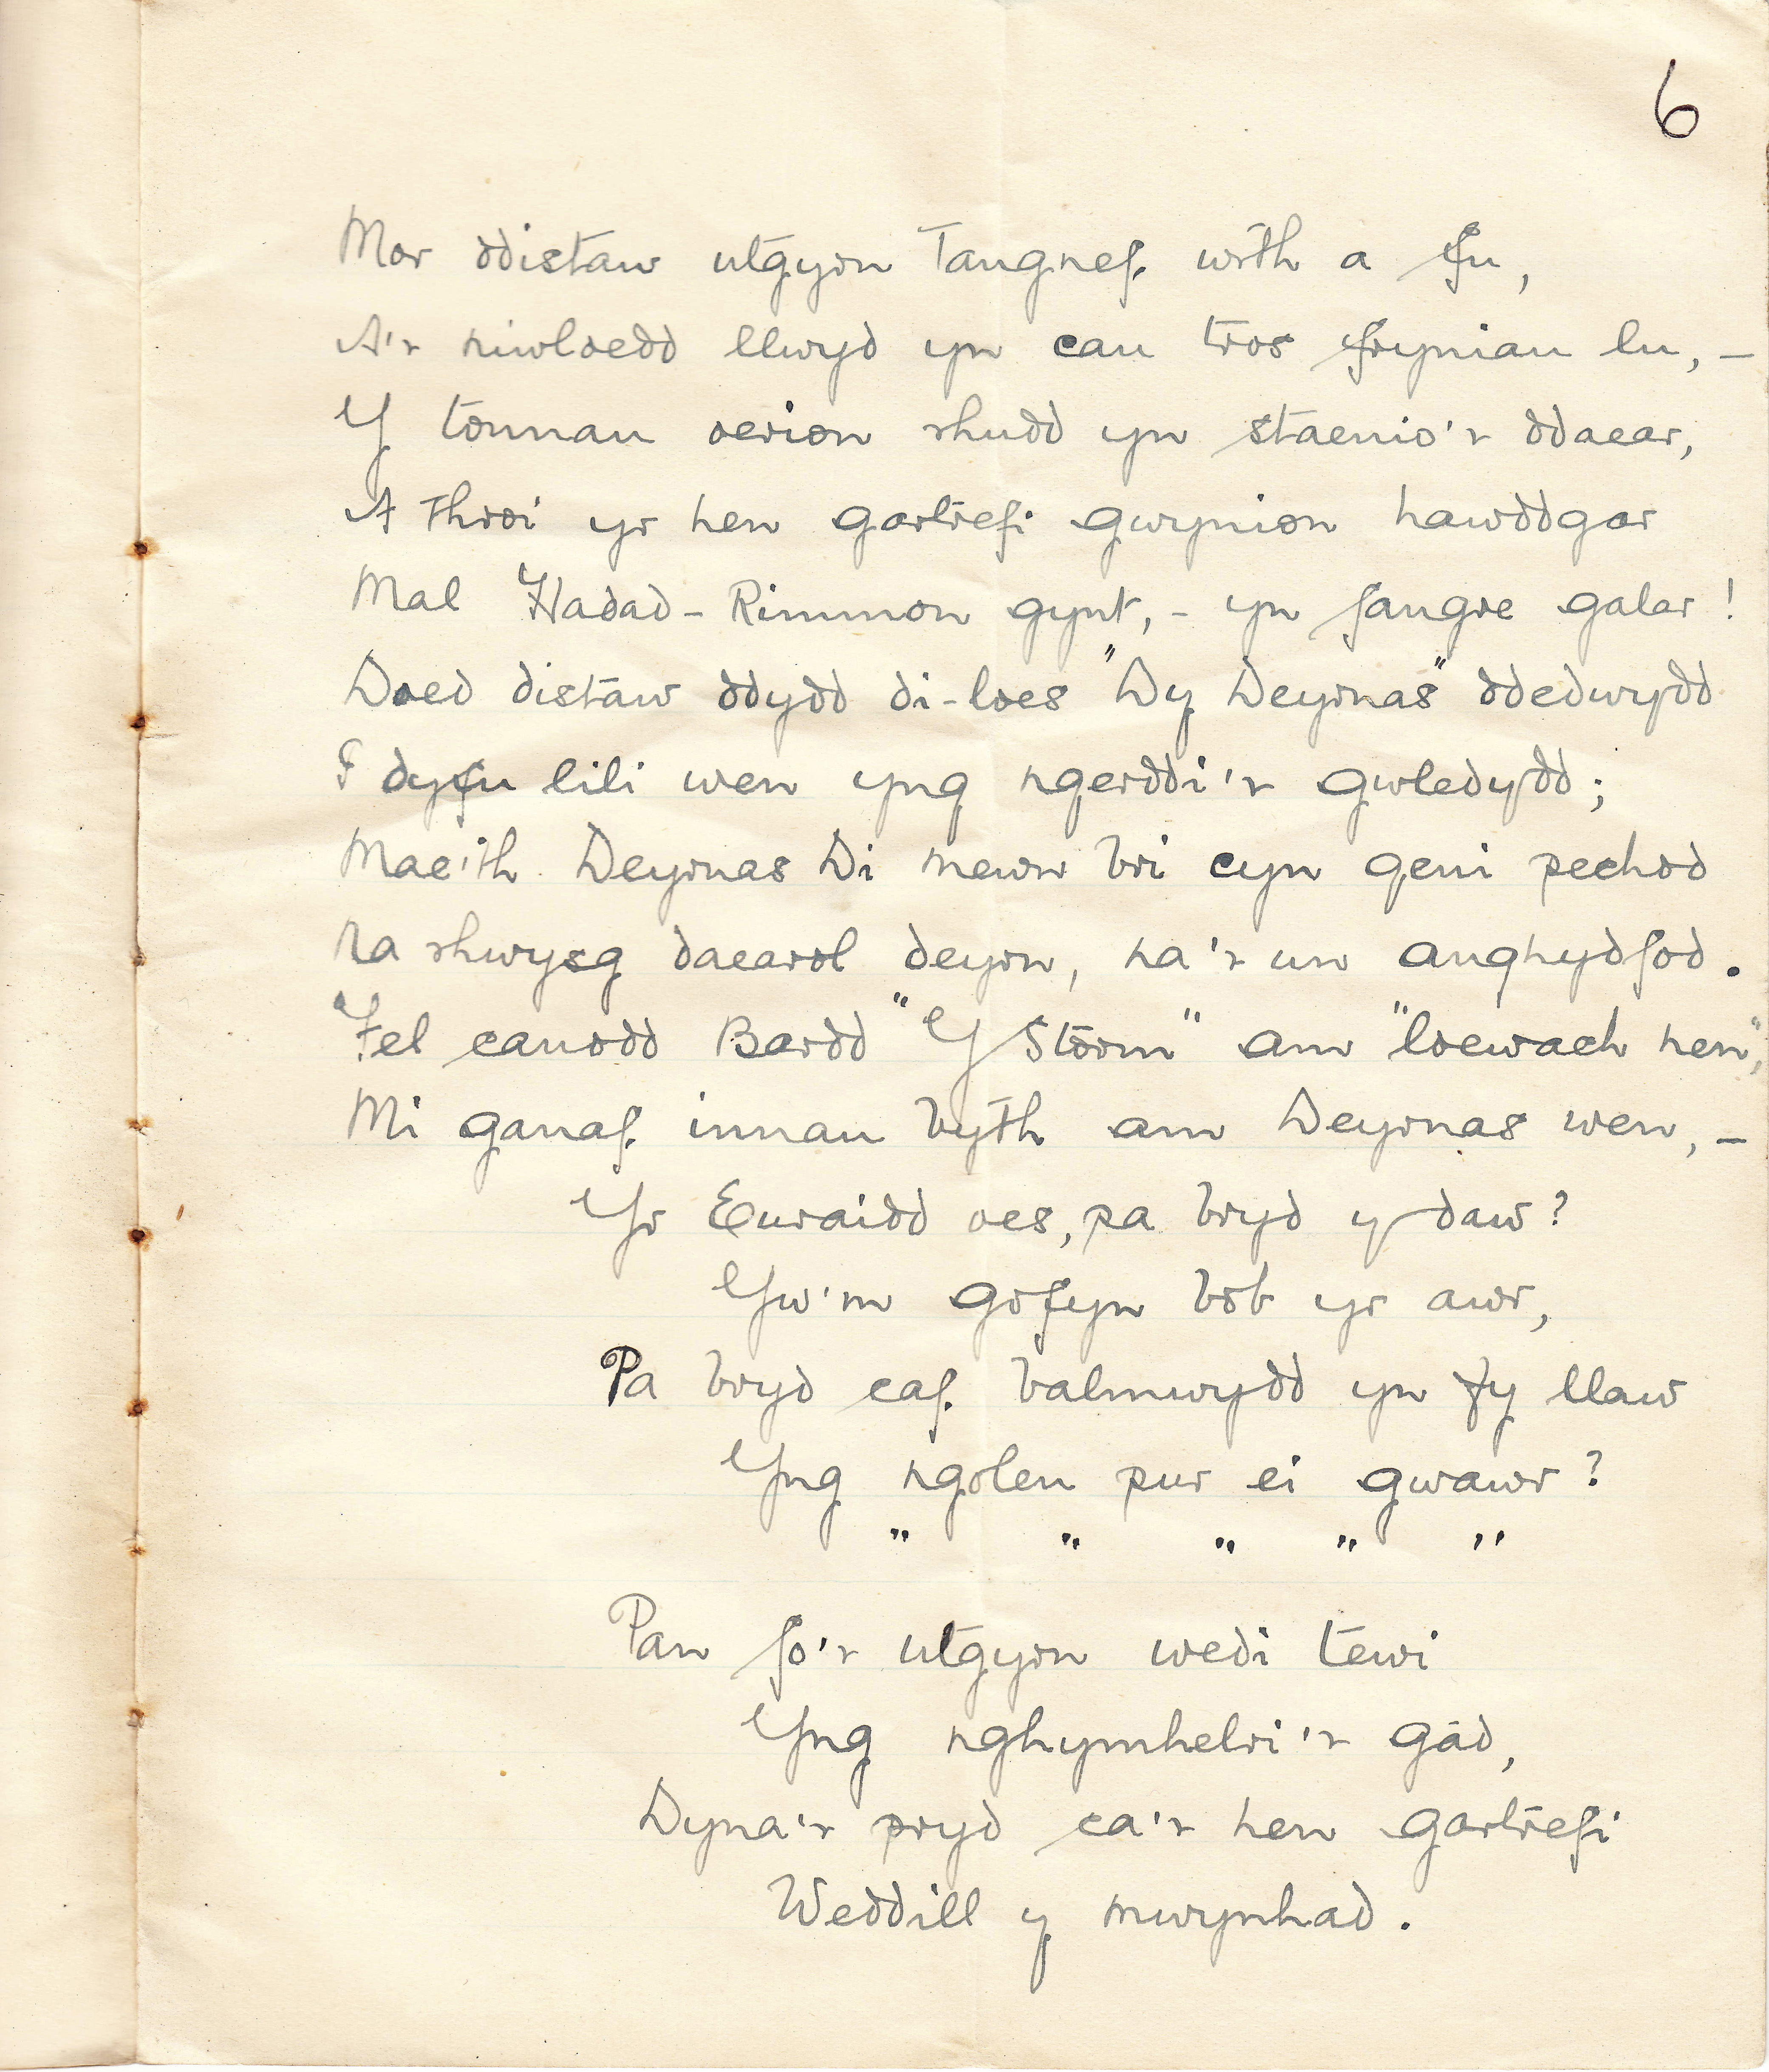 6
Mor ddistaw utgyrn Tangnef wrth a fu,
A'r niwloedd llwyd yn cau tros fryniau lu, -
Y tonnau oerion rhudd yn staenio'r ddaear,
A throi yr hen gartrefi gwynion hawddgar
Mal Hadad-Rimmon gynt, - yn fangre galar!
Doed distaw ddydd di-loes "Dy Deyrnas" ddedwydd
I dyfu lili wen yng ngerddi'r gwledydd;
Mae'th Deyrnas Di mewn bri cyn geni pechod
Na rhwysg daearol deyrn, na'r un anghydfod.
Fel canodd Bardd "Y Storm" am "loewach nen",
Mi ganaf innau byth am Deyrnas wen, -
Yr Euraidd oes, pa bryd y daw?
Yw'm gofyn bob yr awr,
Pa bryd caf balmwydd yn fy llaw
Yng ngoleu pur ei gwawr?
" " " " "
Pan fo'r utgyrn wedi tewi
Yng nghymhelri'r gâd,
Dyna'r pryd ca'r hen gartrefi
Weddill y mwynhad.